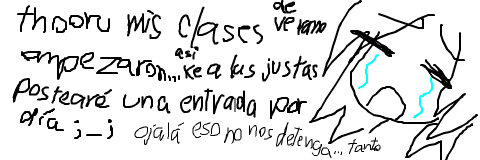 thooru mis clases de verano
empezaron... asi ke a las justas
postearé una entrada por
día ;_; ojalá eso no nos detenga... tanto